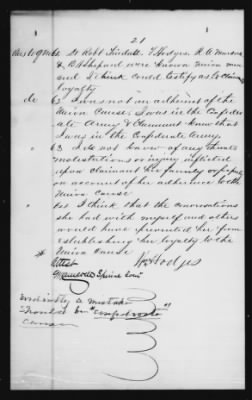 21
Ans to Q
Robt Tindall, T Hodges, R. A.
& B A Shepard were known Union men
and I think could testify as to Claimants
loyalty
do 63 I was not an adherent of the
Union Cause. I was in the Confeder
ate Army & Claimant knew that
I was in the Confederate Army.
do 63 I do not know of any threats
molestations or injury inflicted
upon claimant her family or property
on account of her adherence to the
Union Cause
But I think that the conversations she
had with myself and others
would have prevented her from
establishing her loyalty to the
Union Cause
* Hodges
Attest
Special Com
* Evidently a mistake
should be "Confederate"
cause